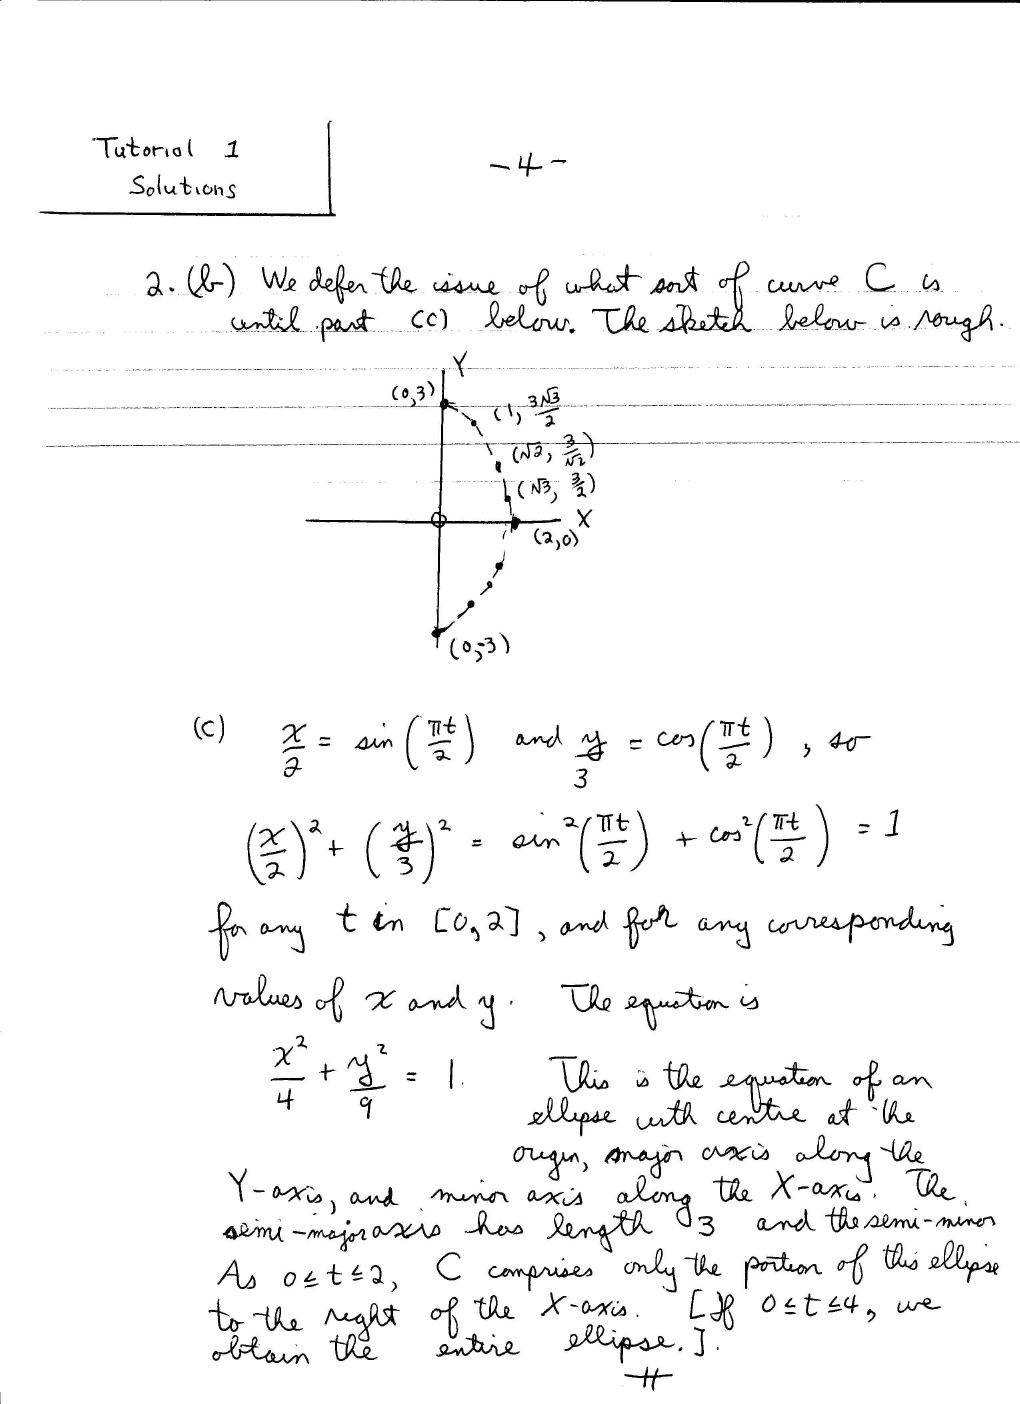 Tutorial 1
Solutions
-4-
2. (b) We defer the issue of what sort of curve C is
until part (c) below. The sketch below is rough.
Y
(0,3)
(1, 3√3/2
(√2, 3/√2)
(√3, 3/2)
X
(2,0)
(0,-3)
(c) x/2 = sin(πt/2) and y/3 = cos(πt/2), so
(x/2)² + (y/3)² = sin²(πt/2) + cos²(πt/2) = 1
for any t in [0,2], and for any corresponding
values of x and y. The equation is
x²/4 + y²/9 = 1. This is the equation of an
ellipse with centre at the
origin, major axis along the
Y-axis, and minor axis along the X-axis. The
semi-major axis has length 3 and the semi-minor
As 0≤t≤2, C comprises only the portion of this ellipse
to the right of the X-axis. [If 0≤t≤4, we
obtain the entire ellipse.].